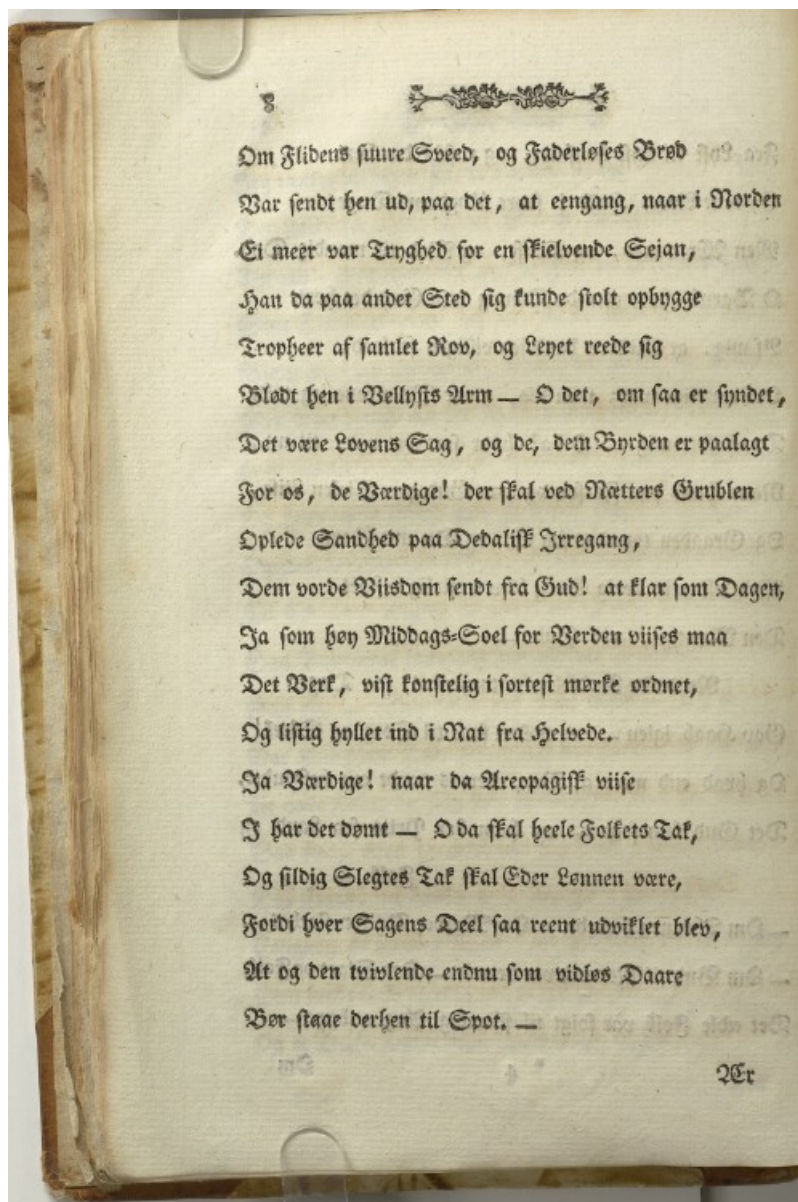 8
Om Flidens suure Sveed, og Faderløses Brød
Var sendt hen ud, paa det, at eengang, naar i Norden
Ei meer var Tryghed for en skielvende Sejan,
Han da paa andet Sted sig kunde stolt opbygge
Tropheer af samlet Rov, og Leyet reede sig
Blødt hen i Vellysts Arm — O det, om saa er syndet,
Det være Lovens Sag, og de, dem Byrden er paalagt
For os, de Værdige! der skal ved Nætters Grublen
Oplede Sandhed paa Dedalisk Irregang,
Dem vorde Viisdom sendt fra Gud! at klar som Dagen,
Ja som høy Middags-Soel for Verden viises maa
Det Verk, vist konstelig i sortest mørke ordnet,
Og listig hyllet ind i Nat fra Helvede.
Ja Værdige! naar da Areopagisk viise
I har det dømt — O da skal heele Folkets Tak,
Og sildig Slegtes Tak skal Eder Lønnen være,
Fordi hver Sagens Deel saa reent udviklet blev,
At og den tvivlende endnu som vidløs Daare
Bør staae derhen til Spot. —
Ær